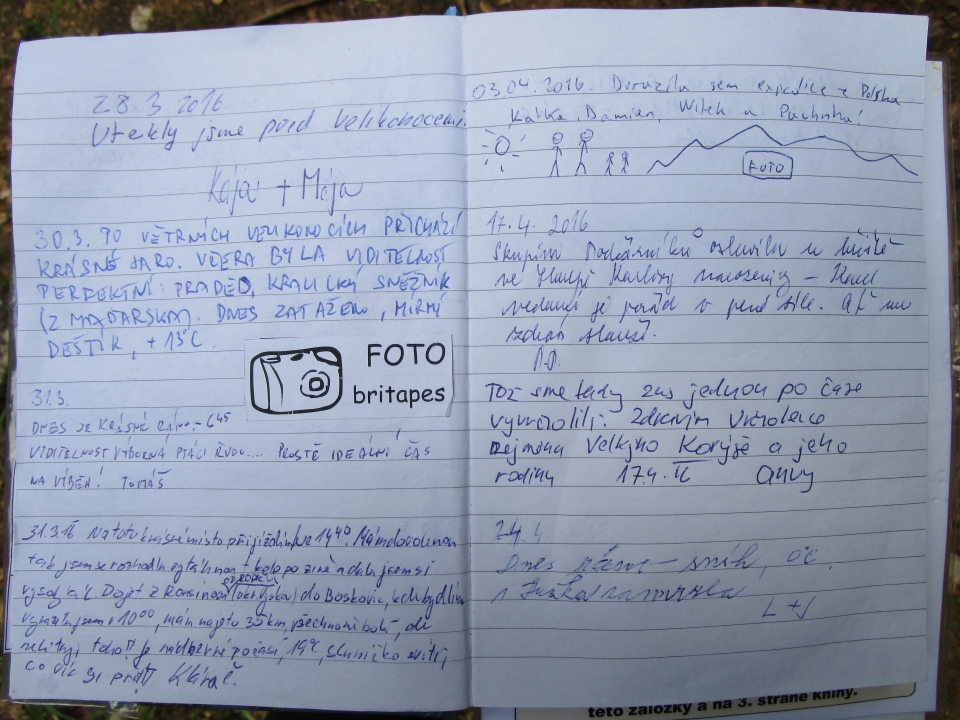 28.3 2016
Utekly jsme před Velikonocemi.
Kája + Mája
30.3. PO VĚTRNÝCH VELIKONOCÍCH PŘICHÁZÍ
KRÁSNÉ JARO. VČERA BYLA VIDITELNOST
PERFEKTNÍ: PRADĚD, KRALICKÝ SNĚŽNÍK
(Z MAĎARSKA). DNES ZATAŽENO, MÍRNÝ
DEŠTÍK, +13°C.
FOTO
britapes
31.3.
DNES JE KRÁSNÉ RÁNO - 6 45
VIDITELNOST VÝBORNÁ PTÁCI ŘVOU.... PROSTĚ IDEÁLNÍ ČAS
NA VÝBĚH! TOMÁŠ
31.3.16 Na toto krásné místo přijíždím ve 14 40. Mám dovolenou
tak jsem se rozhodla vytáhnout kolo po zimě a dala jsem si
výšlap Dojet z do Boskovic, kde bydlím
vyrážela jsem v 10 00, mám najeto 35 km, všechno mě bolí, ale
nelituji toho!! Je nádherné počasí, 19°C, sluníčko svítí,
co víc si přát!!
03.04.2016. Dorazila sem expedice z Polska
Katka, Damian, Witek a
FOTO
17.4. 2016
Skupina oslavila u
ve Karlovy narozeniny –
je pořád v plné síle. Ať mu
zdraví slouží.
Tož sme tady zas jednou po čase
vymrzolili. Zdravím
zejména Velkýho Korýše a jeho
rodinu 17.4. 16
24.4
Dnes - sníh, 0°C.
L + J
této záložky a na 3. straně knihy.